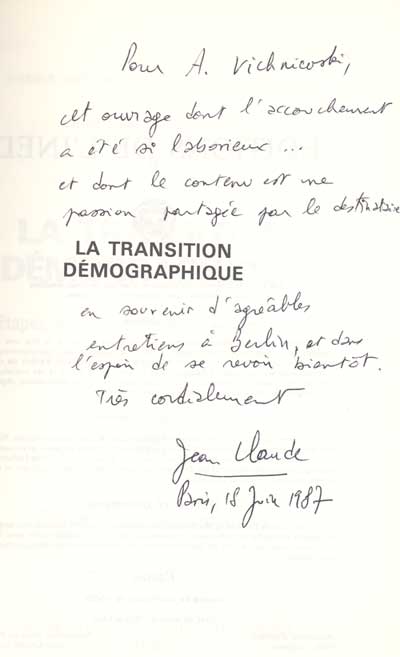 Pour A. Vichnievski,
cet ouvrage dont l'accouchement
a été si laborieux ...
et dont le contenu est une
passion partagée par le destinataire
LA TRANSITION
DÉMOGRAPHIQUE
en souvenir d'agréables
entretiens à Berlin, et dans
l'espoir de se revoir bientôt.
Très cordialement
Jean Claude
Paris, 18 Juin 1987